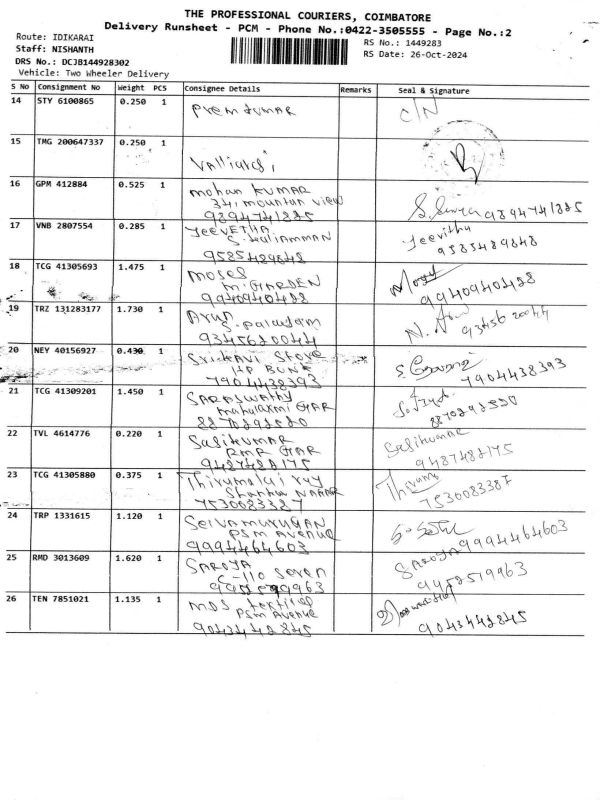 THE PROFESSIONAL COURIERS, COIMBATORE
Delivery Runsheet - PCM - Phone No.:0422-3505555 - Page No.:2
Route: IDIKARAI
RS No.: 1449283
Staff: NISHANTH
RS Date: 26-Oct-2024
DRS No.: DCJB144928302
Vehicle: Two Wheeler Delivery
S No Consignment No Weight PCS Consignee Details Remarks Seal & Signature
14 STY 6100865 0.250 1 Premkumar C/N
15 TMG 200647337 0.250 1
16 GPM 412884 0.525 1 mohan KUMAR
341 mountain view
9894741885 9894741885
17 VNB 2807554 0.285 1 JEEVETHA Jeevitha
S.kuliAMMAN
9585489848 9585489848
18 TCG 41305693 1.475 1 MOSES
M.GARDEN
9940940488 9940940488
19 TRZ 131283177 1.730 1 Arun
S.palayam
9345620044 9345620044
20 NEY 40156927 0.430 1 Sridevi Store
HP BUNE
7904438393 7904438393
21 TCG 41309201 1.450 1 SARASWATHY
mahalaxmi GAR
22 TVL 4614776 0.220 1 Sasikumar Sasikumar
RMR GAR
9487488175 9487488175
23 TCG 41305880 1.375 1 Thirumalai
NAGAR
7530083387 7530083387
24 TRP 1331615 1.120 1 Selvamurugan
PSM Avenue
9994464603 9994464603
25 RMD 3013609 1.620 1 SAROJA SAROJA
C-110 Seven
26 TEN 7851021 1.135 1 MDS textiles
PSM Avenue
9043442845 9043442845